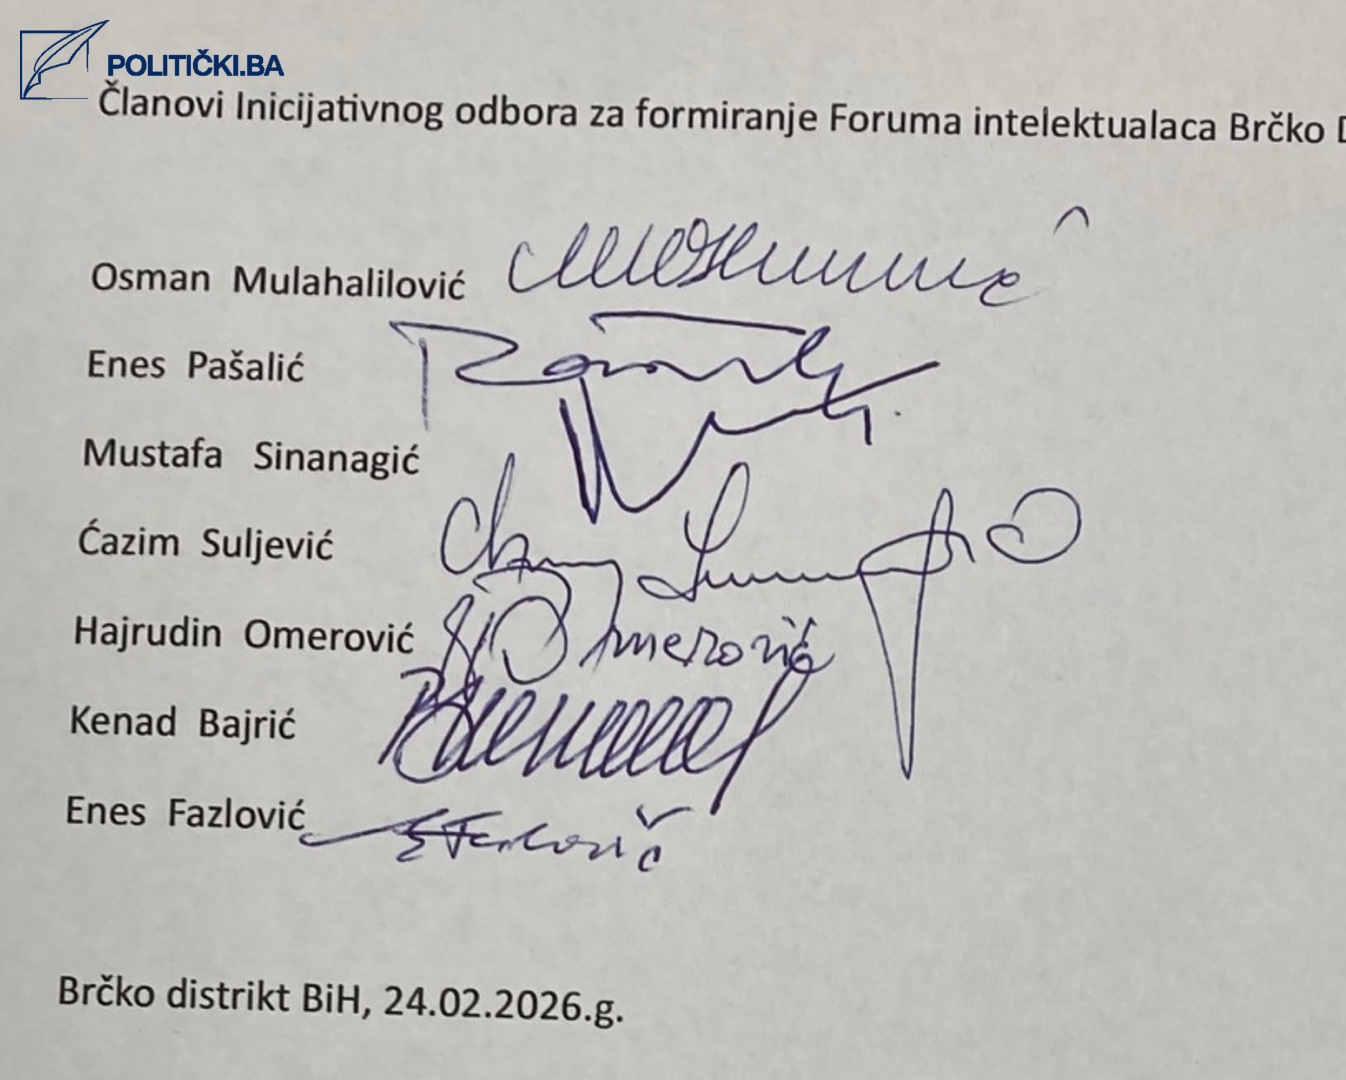 POLITIČKI.BA
Članovi Inicijativnog odbora za formiranje Foruma intelektualaca Brčko
Osman Mulahalilović
Enes Pašalić
Mustafa Sinanagić
Ćazim Suljević
Hajrudin Omerović
Omerović
Kenad Bajrić
Enes Fazlović
Brčko distrikt BiH, 24.02.2026.g.